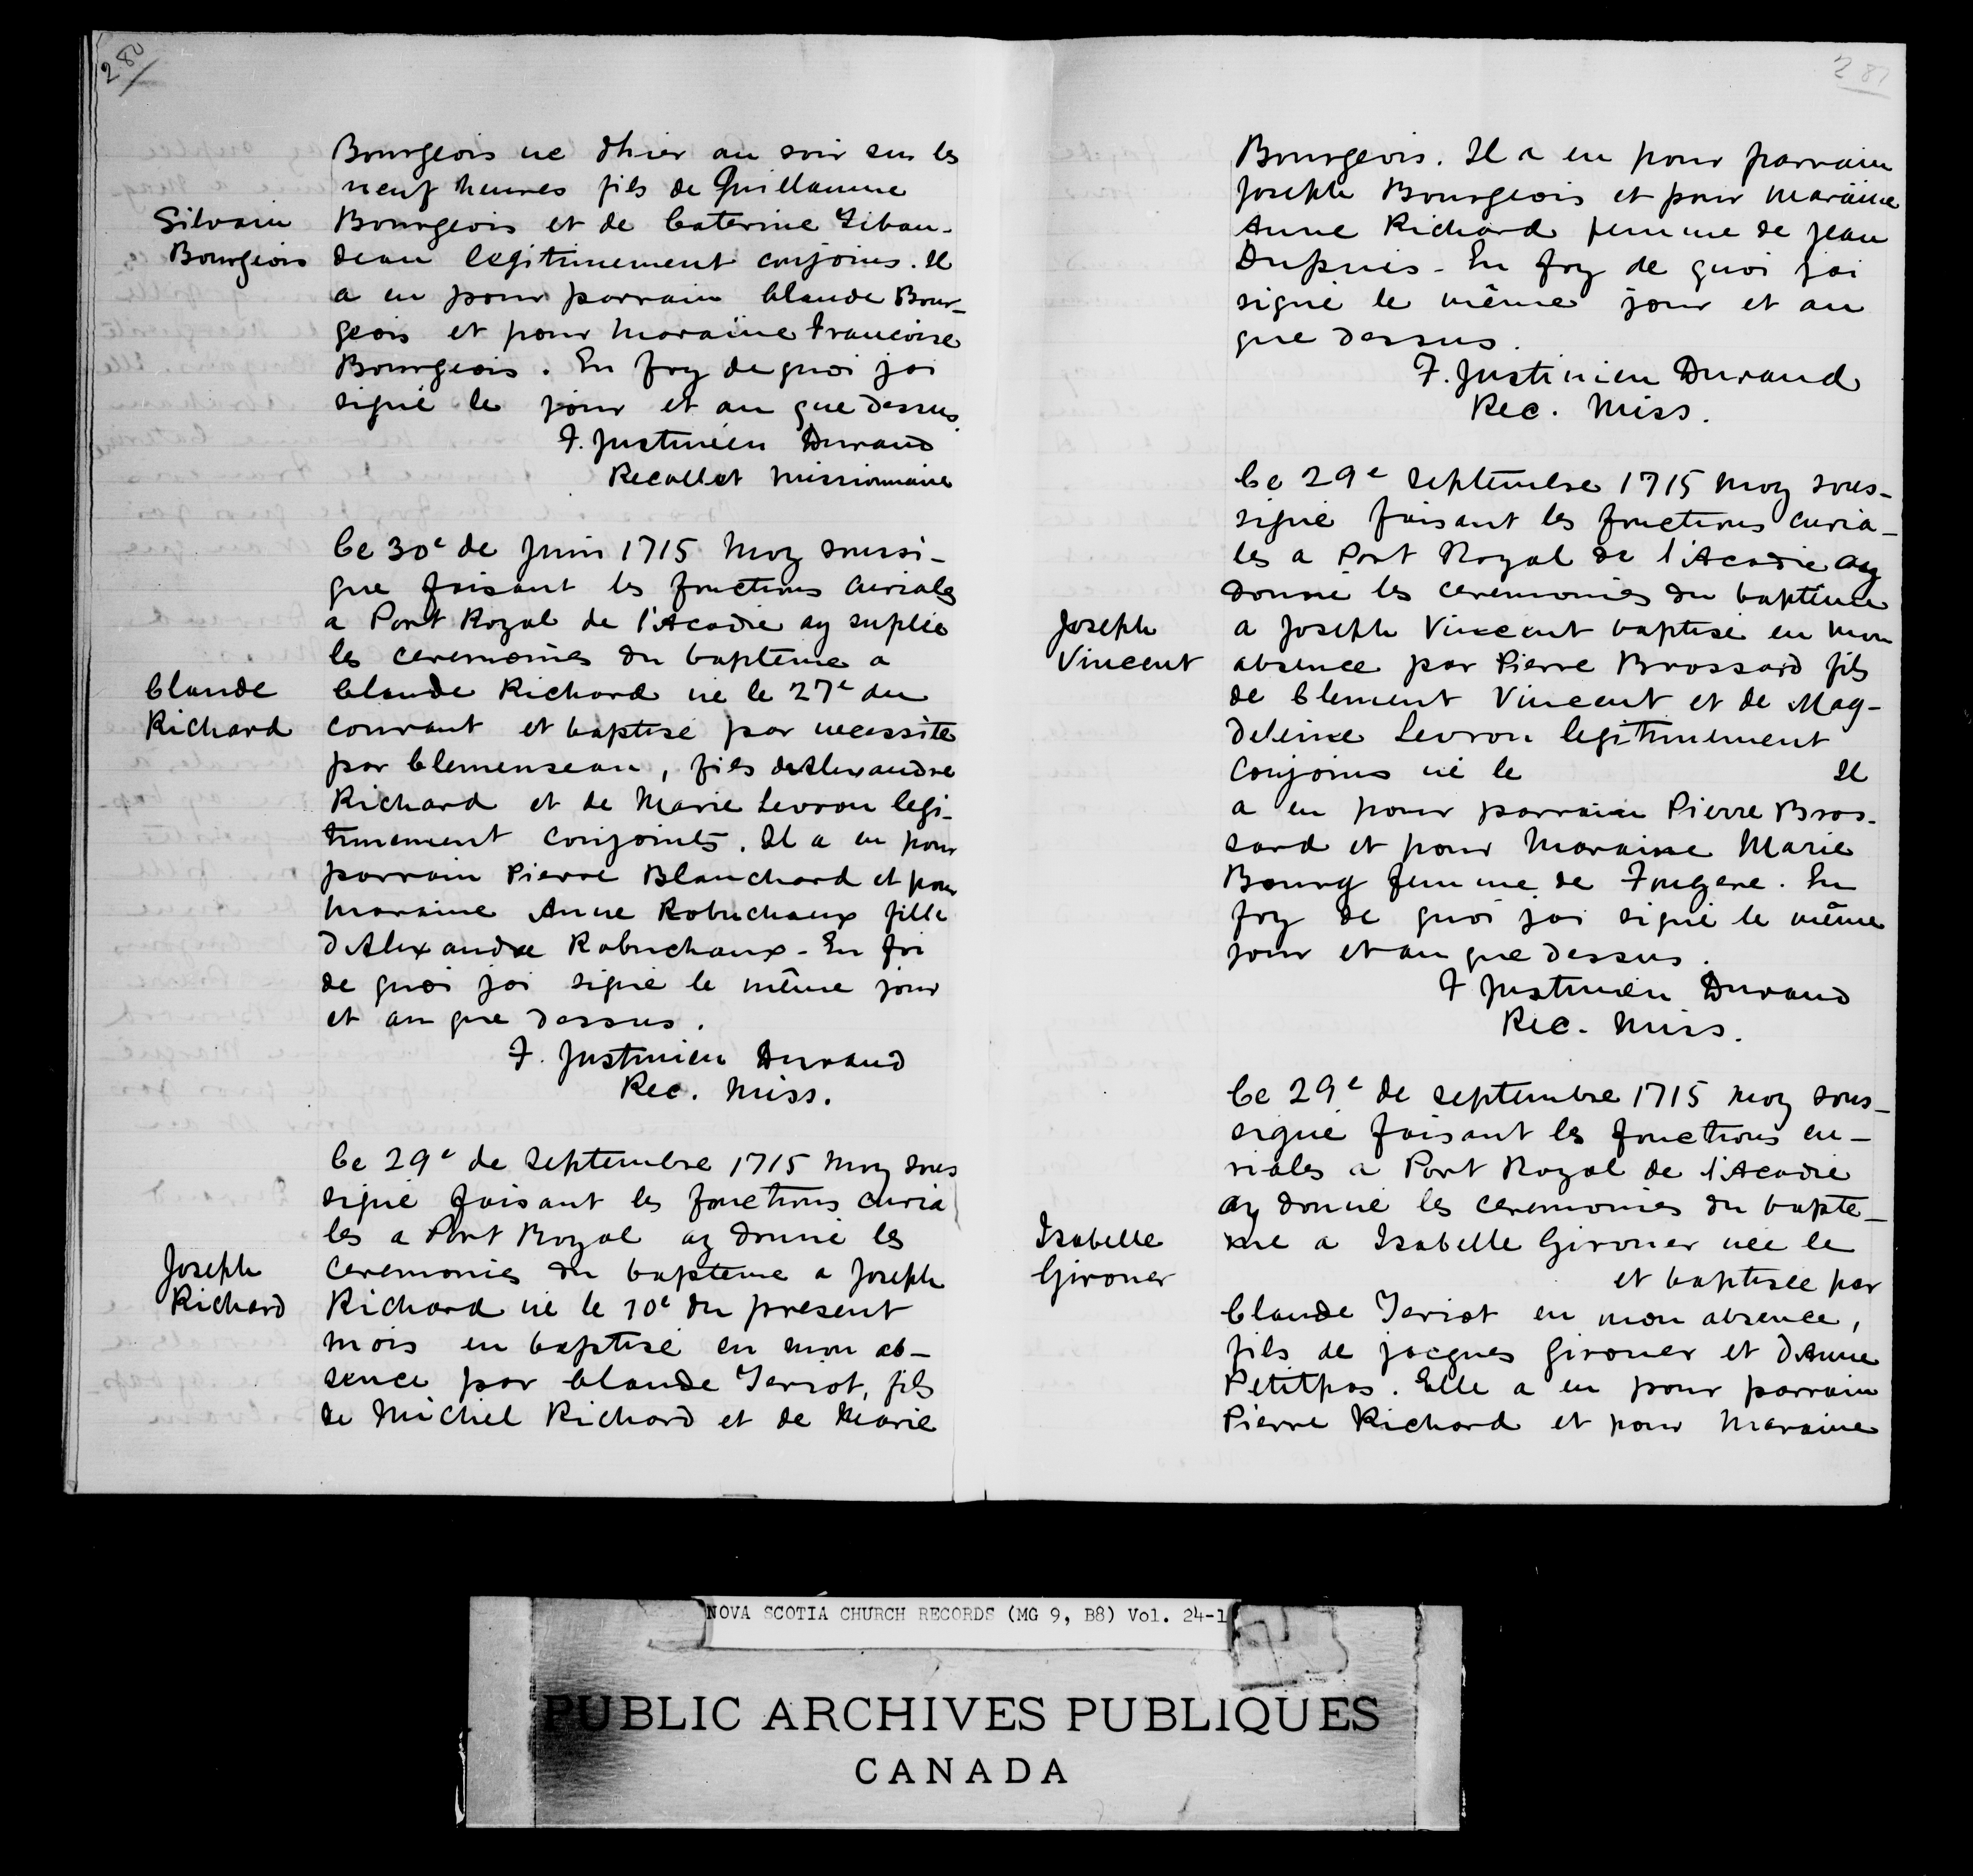 280
Bourgeois ne dhier au soir sur les
neuf heures fils de Guillaume
Silvain
Bourgeois
Bourgeois et de Caterine Tibau-
deau legitimement conjoins. Il
a eu pour parrain Claude Bour-
geois et pour maraine Francoise
Bourgeois. En foy de quoi jai
signé le jour et an que dessus.
F. Justinien Durand
Recollet Missionnaire
Ce 30e de Juin 1715 moy soussi-
gne faisant les fonctions curiales
a Port Royal de l'Acadie ay suplée
les ceremonies du bapteme a
Claude
Richard
Claude Richard né le 27e du
courant et baptisé par necessité
par Clemenseau, fils dAlexandre
Richard et de Marie Levron legi-
timement conjoints. Il a eu pour
parrain Pierre Blanchard et pour
maraine Anne Robichaux fille
dAlexandre Robichaux - En foi
de quoi jai signé le même jour
et an que dessus.
F. Justinien Durand
Rec. Miss.
Ce 29e de Septembre 1715 moy sous
signé faisant les fonctions curia
les a Port Royal ay donné les
Joseph
Richard
ceremonies du bapteme a Joseph
Richard né le 10e du present
mois en baptisé en mon ab-
sence par Claude Teriot, fils
de Michel Richard et de Marie
281
Bourgeois. Il a eu pour parrain
Joseph Bourgeois et pour maraine
Anne Richard femme de Jean
Dupuis - En foy de quoi jai
signé le même jour et an
que dessus.
F. Justinien Durand
Rec. Miss.
Ce 29e Septembre 1715 moy sous-
signé faisant les fonctions curia-
les a Port Royal de l'Acadie ay
donné les ceremonies du baptême
Joseph
Vincent
a Joseph Vincent baptisé en mon
absence par Pierre Brossard fils
de Clement Vincent et de Mag-
deleine Levron legitimement
conjoins né le Il
a eu pour parrain Pierre Bros-
sard et pour maraine Marie
Bourg femme de Fougere. En
foy de quoi jai signé le même
jour et an que dessus.
F Justinien Durand
Rec. Miss.
Ce 29e de septembre 1715 moy sous-
signé faisant les fonctions cu-
riales a Port Royal de l'Acadie
ay donné les ceremonies du bapte-
Isabelle
Girouer
me a Isabelle Girouer née le
et baptisée par
Claude Teriot en mon absence,
fils de Jacques Girouer et dAnne
Petitpas. Elle a eu pour parrain
Pierre Richard et pour maraine
NOVA SCOTIA CHURCH RECORDS (MG 9, B8) Vol. 24-1
PUBLIC ARCHIVES PUBLIQUES
CANADA